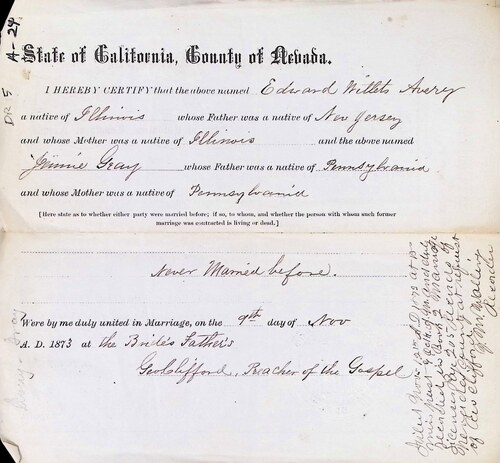 State of California, County of Nevada.
I HEREBY CERTIFY that the above named Edward Willets Avery
a native of Illinois whose Father was a native of New Jersey
and whose Mother was a native of Illinois and the above named
Jennie Gray whose Father was a native of Pennsylvania
and whose Mother was a native of Pennsylvania
[Here state as to whether either party were married before; if so, to whom, and whether the person with whom such former
marriage was contracted is living or dead.]
Never Married before.
Were by me duly united in Marriage, on the 9th day of Nov
A. D. 1873 at the Bride's Father's
Geo Clifford, Preacher of the Gospel
A-24
DR 5
Filed Nov A.D. 1873 at
min past o'clock and duly
recorded in Book 2 Marriage
Licenses, Page 205 Records of
Nevada County at request
of Geo Clifford
Recorder